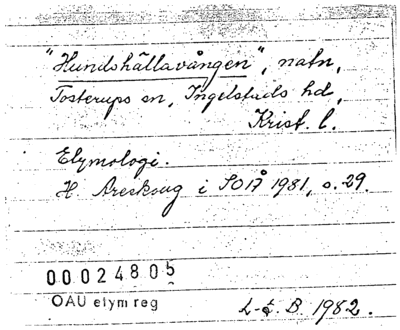 "Hundshällavången", natn,
Tosterups sn, Ingelstads hd,
Krist. l.
Etymologi.
H. Areskoug i SOÅ 1981, s. 29.
00024805
OAU etym reg
B. 1982.